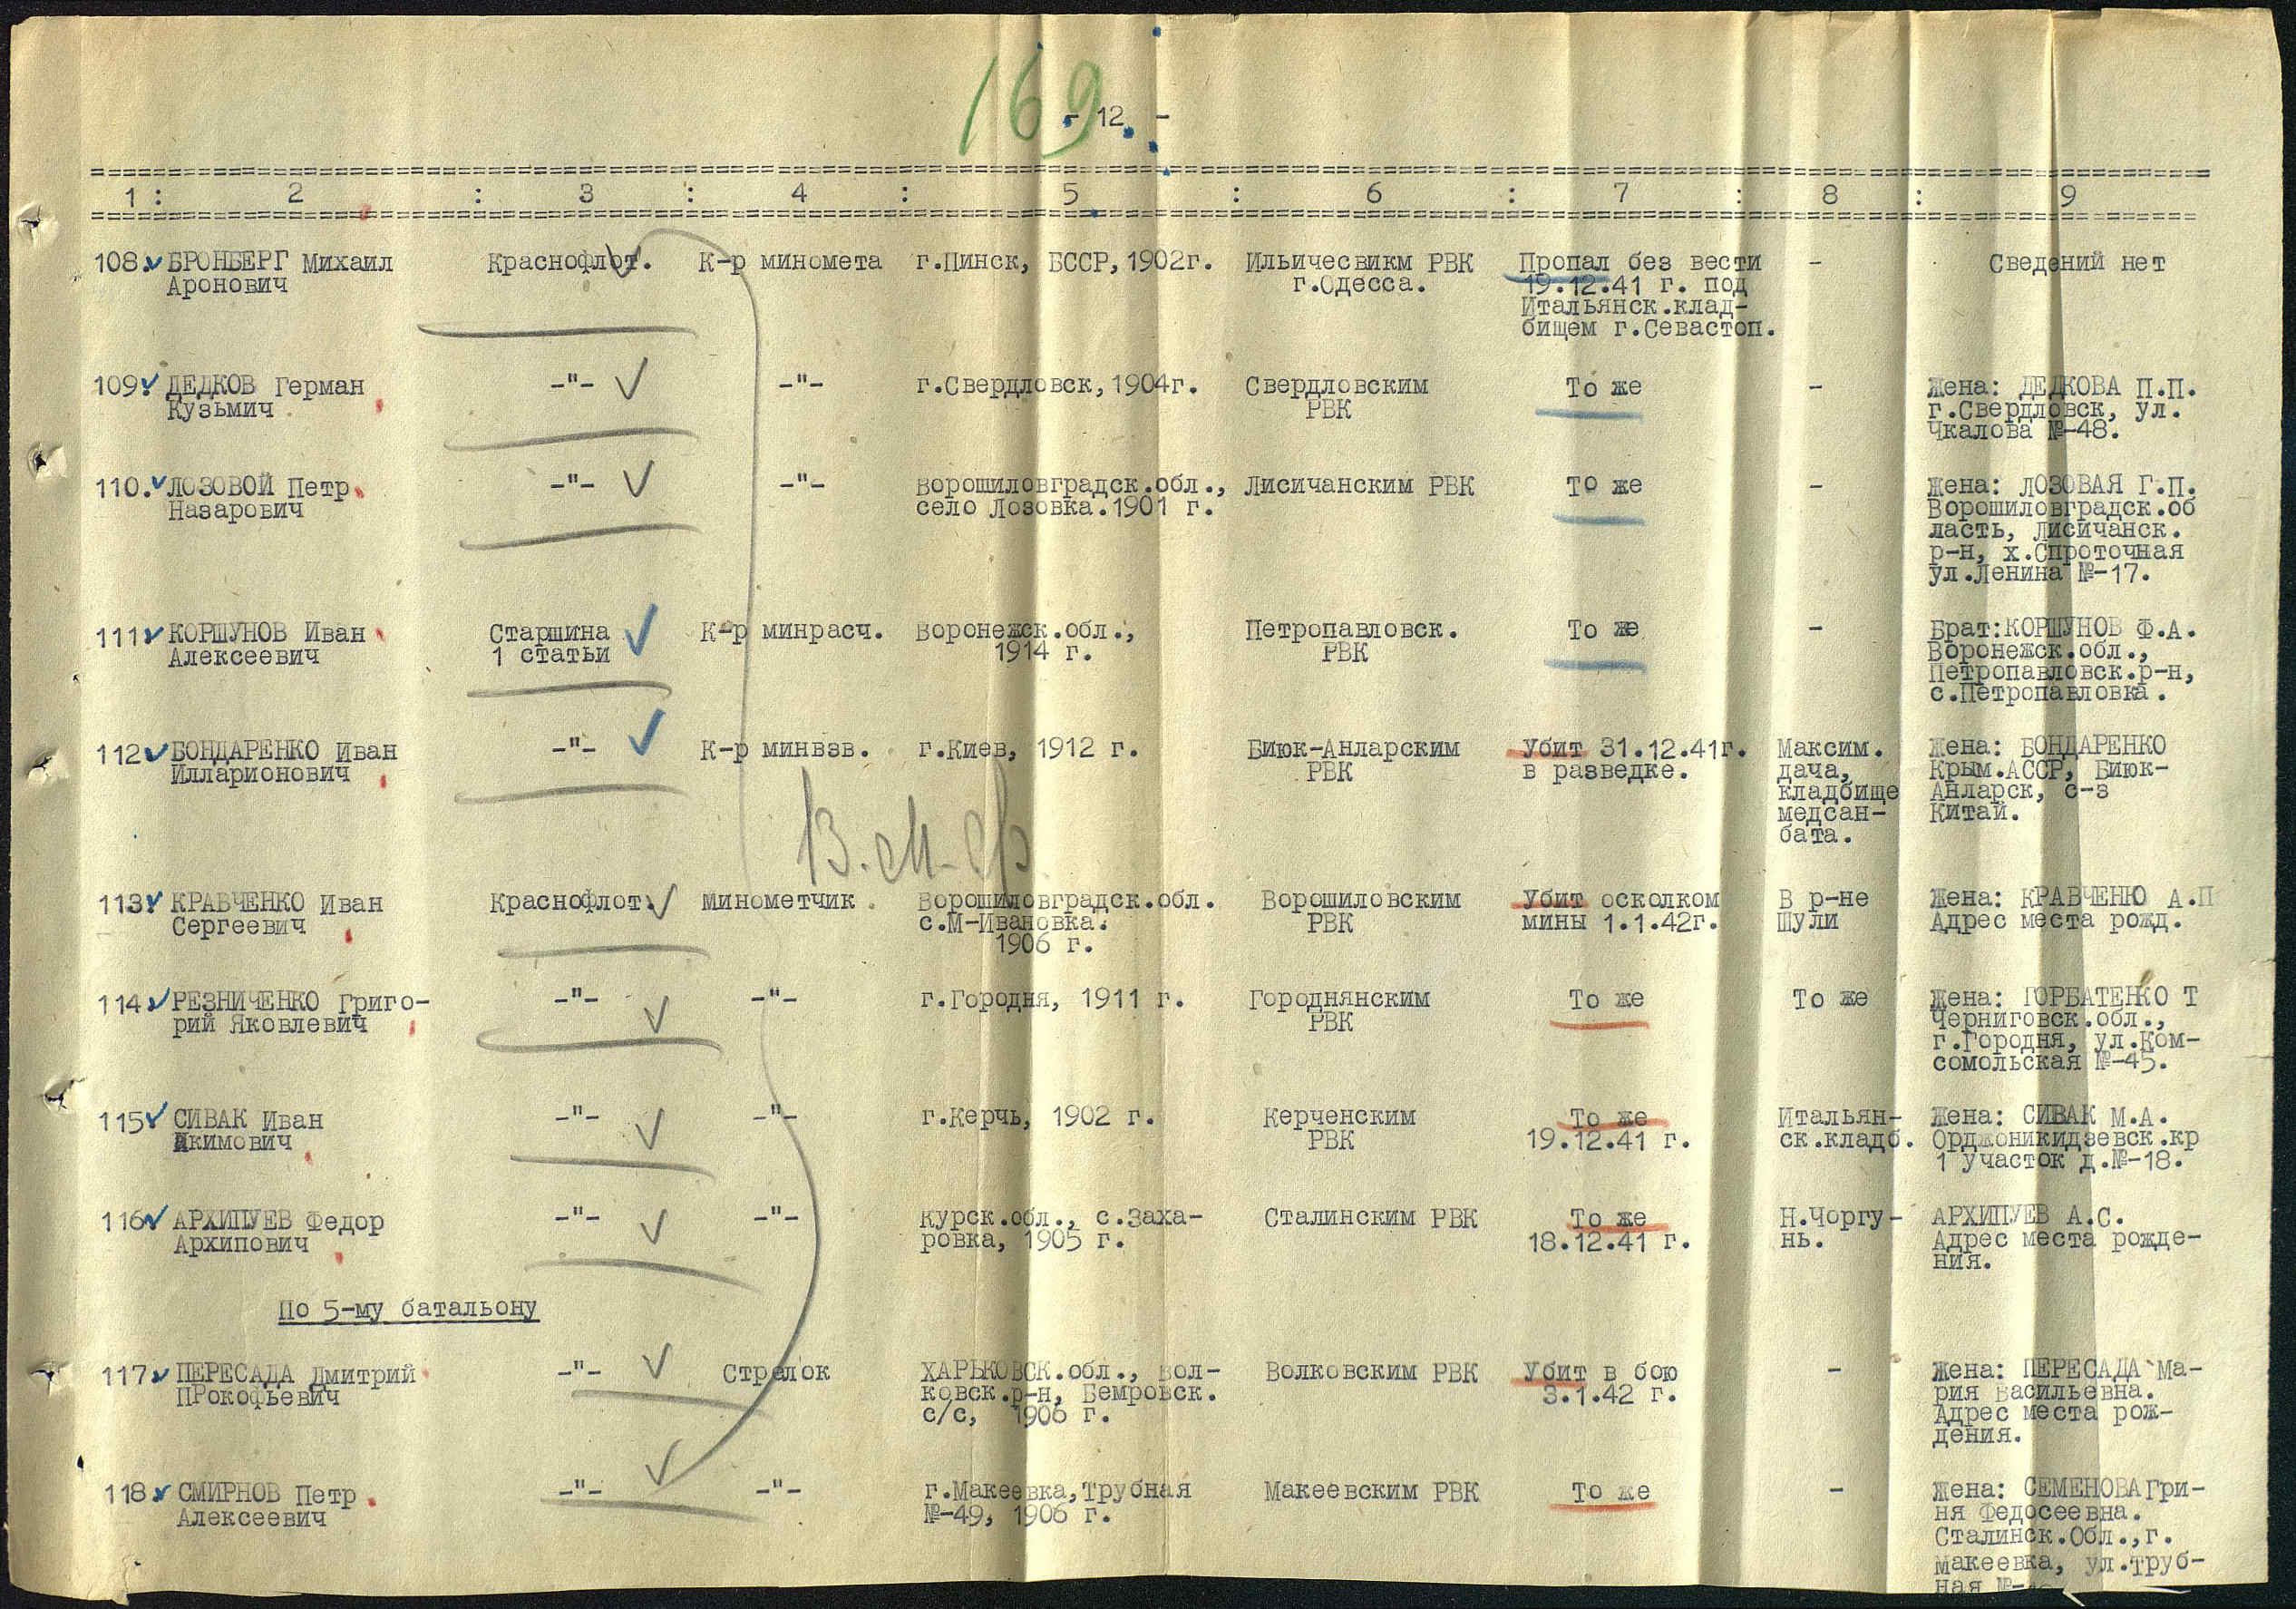 169
- 12 -
1 : 2 : 3 : 4 : 5 : 6 : 7 : 8 : 9
108. БРОНБЕРГ Михаил Краснофлот. К-р миномета г.Пинск, БССР,1902г. Ильичесвикм РВК Пропал без вести - Сведений нет
Аронович г.Одесса. 19.12.41 г. под
Итальянск.клад-
бищем г.Севастоп.
109. ДЕДКОВ Герман -"- -"- г.Свердловск,1904г. Свердловским То же - Жена: ДЕДКОВА П.П.
Кузьмич РВК г.Свердловск, ул.
Чкалова №-48.
110. ЛОЗОВОЙ Петр -"- -"- Ворошиловградск.обл., Лисичанским РВК То же - Жена: ЛОЗОВАЯ Г.П.
Назарович село Лозовка.1901 г. Ворошиловградск.об
ласть, Лисичанск.
р-н, х.Спроточная
ул.Ленина №-17.
111 КОРШУНОВ Иван Старшина К-р минрасч. Воронежск.обл., Петропавловск. То же - Брат:КОРШУНОВ Ф.А.
Алексеевич 1 статьи 1914 г. РВК Воронежск.обл.,
Петропавловск.р-н,
с.Петропавловка.
112 БОНДАРЕНКО Иван -"- К-р минвзв. г.Киев, 1912 г. Биюк-Анларским Убит 31.12.41г. Максим. Жена: БОНДАРЕНКО
Илларионович РВК в разведке. дача, Крым.АССР, Биюк-
кладбище Анларск, с-з
медсан- Китай.
бата.
В.М.Ф
113. КРАВЧЕНКО Иван Краснофлот. Минометчик . Ворошиловградск.обл. Ворошиловским Убит осколком В р-не Жена: КРАВЧЕНКО А.П
Сергеевич с.М-Ивановка. РВК мины 1.1.42г. Шули Адрес места рожд.
1906 г.
114. РЕЗНИЧЕНКО Григо- -"- -"- г.Городня, 1911 г. Городнянским То же То же Жена: ГОРБАТЕНКО Т
рий Яковлевич РВК Черниговск.обл.,
г.Городня, ул.Ком-
сомольская №-45.
115 СИВАК Иван -"- -"- г.Керчь, 1902 г. Керченским То же Итальян- Жена: СИВАК М.А.
Акимович РВК 19.12.41 г. ск.кладб. Орджоникидзевск.кр
1 участок д.№-18.
116 АРХИПУЕВ Федор -"- -"- Курск.обл., с.Заха- Сталинским РВК То же Н.Чоргу- АРХИПУЕВ А.С.
Архипович ровка, 1905 г. 18.12.41 г. нь. Адрес места рожде-
ния.
По 5-му батальону
117. ПЕРЕСАДА Дмитрий -"- Стрелок ХАРЬКОВСК.обл., Вол- Волковским РВК Убит в бою - Жена: ПЕРЕСАДА Ма-
ПРокофьевич ковск.р-н, Бемровск. 3.1.42 г. рия Васильевна.
с/с, 1906 г. Адрес места рож-
дения.
118. СМИРНОВ Петр -"- -"- г.Макеевка,Трубная Макеевским РВК То же - Жена: СЕМЕНОВА Гри-
Алексеевич №-49, 1906 г. ня Федосеевна.
Сталинск.Обл.,г.
Макеевка, ул.Труб-
ная №-